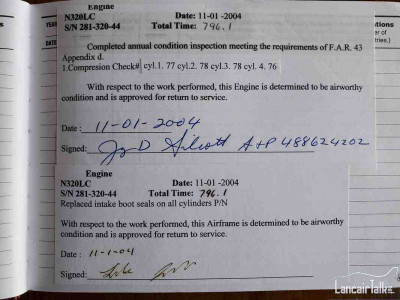 Engine
N320LC Date: 11-01 -2004
S/N 281-320-44 Total Time: 796.1
Completed annual condition inspection meeting the requirements of F.A.R. 43
Appendix d.
1.Compresion Check# cyl.1. 77 cyl.2. 78 cyl.3. 78 cyl. 4. 76
With respect to the work performed, this Engine is determined to be airworthy
condition and is approved for return to service.
Date : 11-01-2004
Signed: A+P 488624202
Engine
N320LC Date: 11-01 -2004
S/N 281-320-44 Total Time: 796.1
Replaced intake boot seals on all cylinders P/N
With respect to the work performed, this Airframe is determined to be airworthy
condition and is approved for return to service.
Date : 11-1-04
Signed:
YEAR
DATE
tions
er of
tries.)
LancairTalk